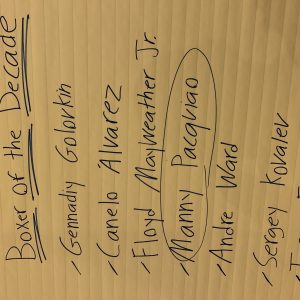 Boxer of the Decade
Gennadiy Golovkin
Canelo Alvarez
Floyd Mayweather Jr.
Manny Pacquiao
Andre Ward
Sergey Kovalev